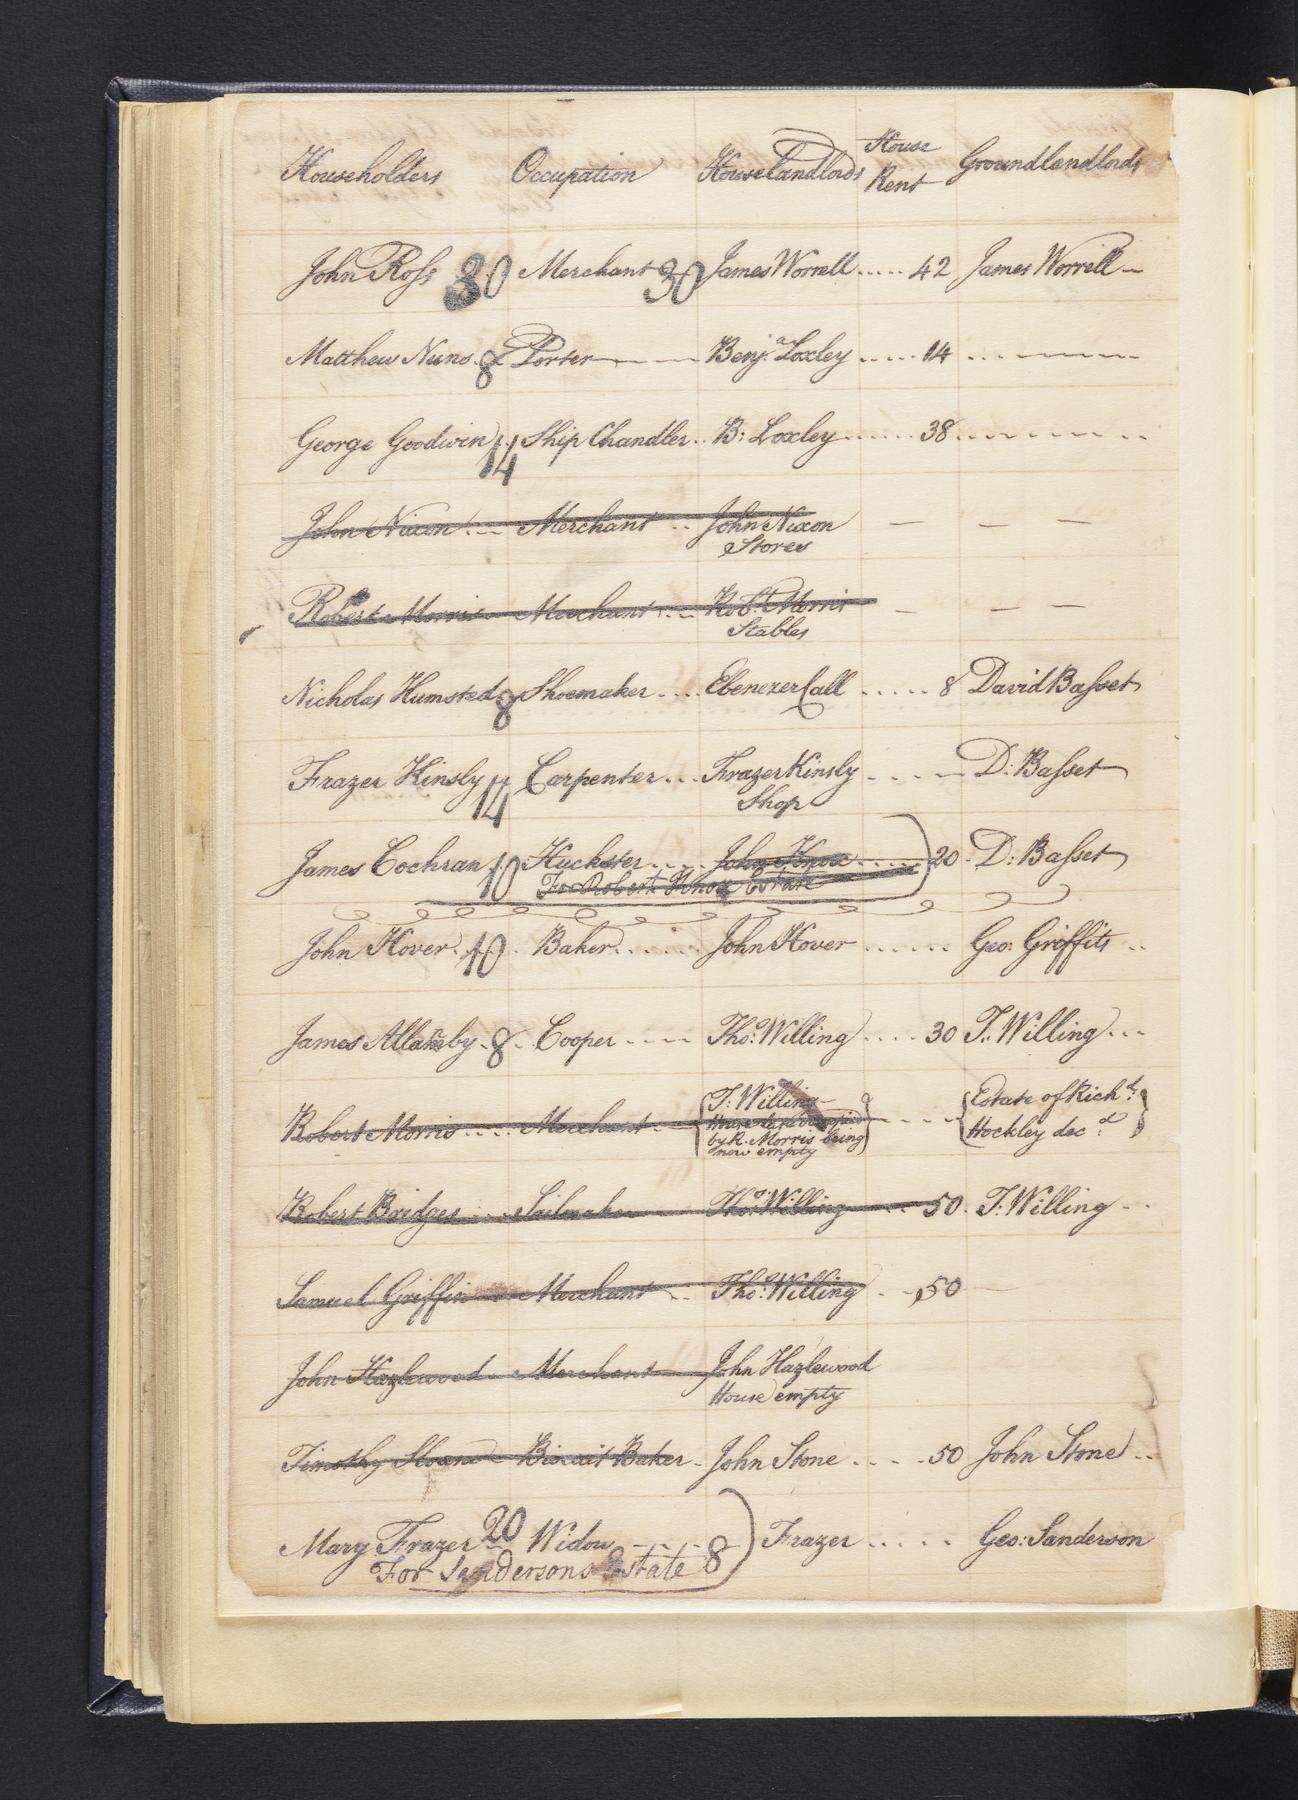 Householders Occupation House Landlords House Rent Groundlandlords
John Ross 30 Merchant 30 James Worrell ..... 42 James Worrell -
Matthew Nuns 8 Porter - - Benj.a Loxley ..... 14 ... - - - -
George Goodwin 14 Ship Chandler .. B: Loxley ...... 38 - - - - - -
John Nixon ... Merchant .. John Nixon - - -
Stores
Robert Morris - Merchant ... Rob.t Morris - - -
Stables
Nicholas Humsted 8 Shoemaker .... Ebenezer Call ..... 8 David Basset
Frazer Kinsly 14 Carpenter ... Frazer Kinsly - - - - D: Basset
Shop
James Cochran 10 Huckster .... John Knox ..... 20 - D: Basset
For Robert Knox Estate
John Hover 10 Baker ...... John Hover ...... Geo: Griffits ..
James Allamby 8 Cooper .... Tho.s Willing .... 30 T. Willing ...
Robert Morris .... Merchant - T: Willing - - - - Estate of Rich.d
House
by R. Morris being Hockley dec.d
now empty
Robert Bridges ... Sailmaker Tho.s Willing .. 50. T. Willing - -
Samuel Griffin - Merchant .. Tho.s Willing . - 50
John Hazlewood - Merchant - John Hazlewood
House empty
Timothy Sloane - Biscuit Baker - John Stone .... 50 John Stone ..
Mary Frazer 20 Widow - - - - Frazer ..... Geo: Sanderson
For Sandersons Estate 8